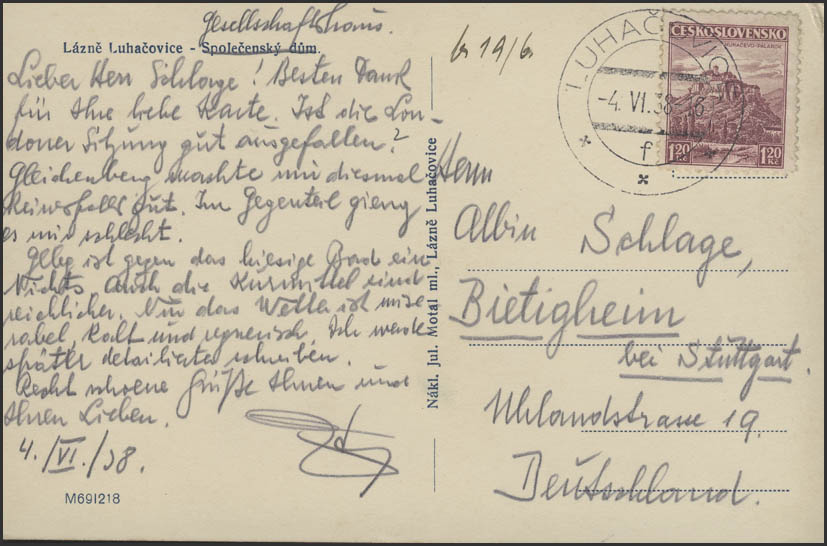 Gesellschaftshaus.
Lázně Luhačovice - Společenský dům.
Lieber Herr Schlage! Besten Dank
für Ihre liebe Karte. Ist die Lon-
doner Sitzung gut ausgefallen?
Gleichenberg machte mir diesmal
keinesfalls gut. Im Gegenteil gieng
es mir schlecht.
Gleg ist gegen das hiesige Bad ein
Nichts. Auch die Kurmittel sind
reichlicher. Nur das Wetter ist mise
rabel, kalt und regnerisch. Ich werde
später detailierter schreiben.
Recht schoene Grüße Ihnen und
Ihren Lieben.
4./VI./38.
M691218
Nákl. Jul. Motal ml., Lázně Luhačovice
19/6
LUHAČOVICE
-4. VI. 38
f
ČESKOSLOVENSKO
MUKAČEVO-PALANOK
1.20 Kč 1.20
Herrn
Albin Schlage,
Bietigheim
bei Stuttgart.
Uhlandstrasse 19.
Deutschland.